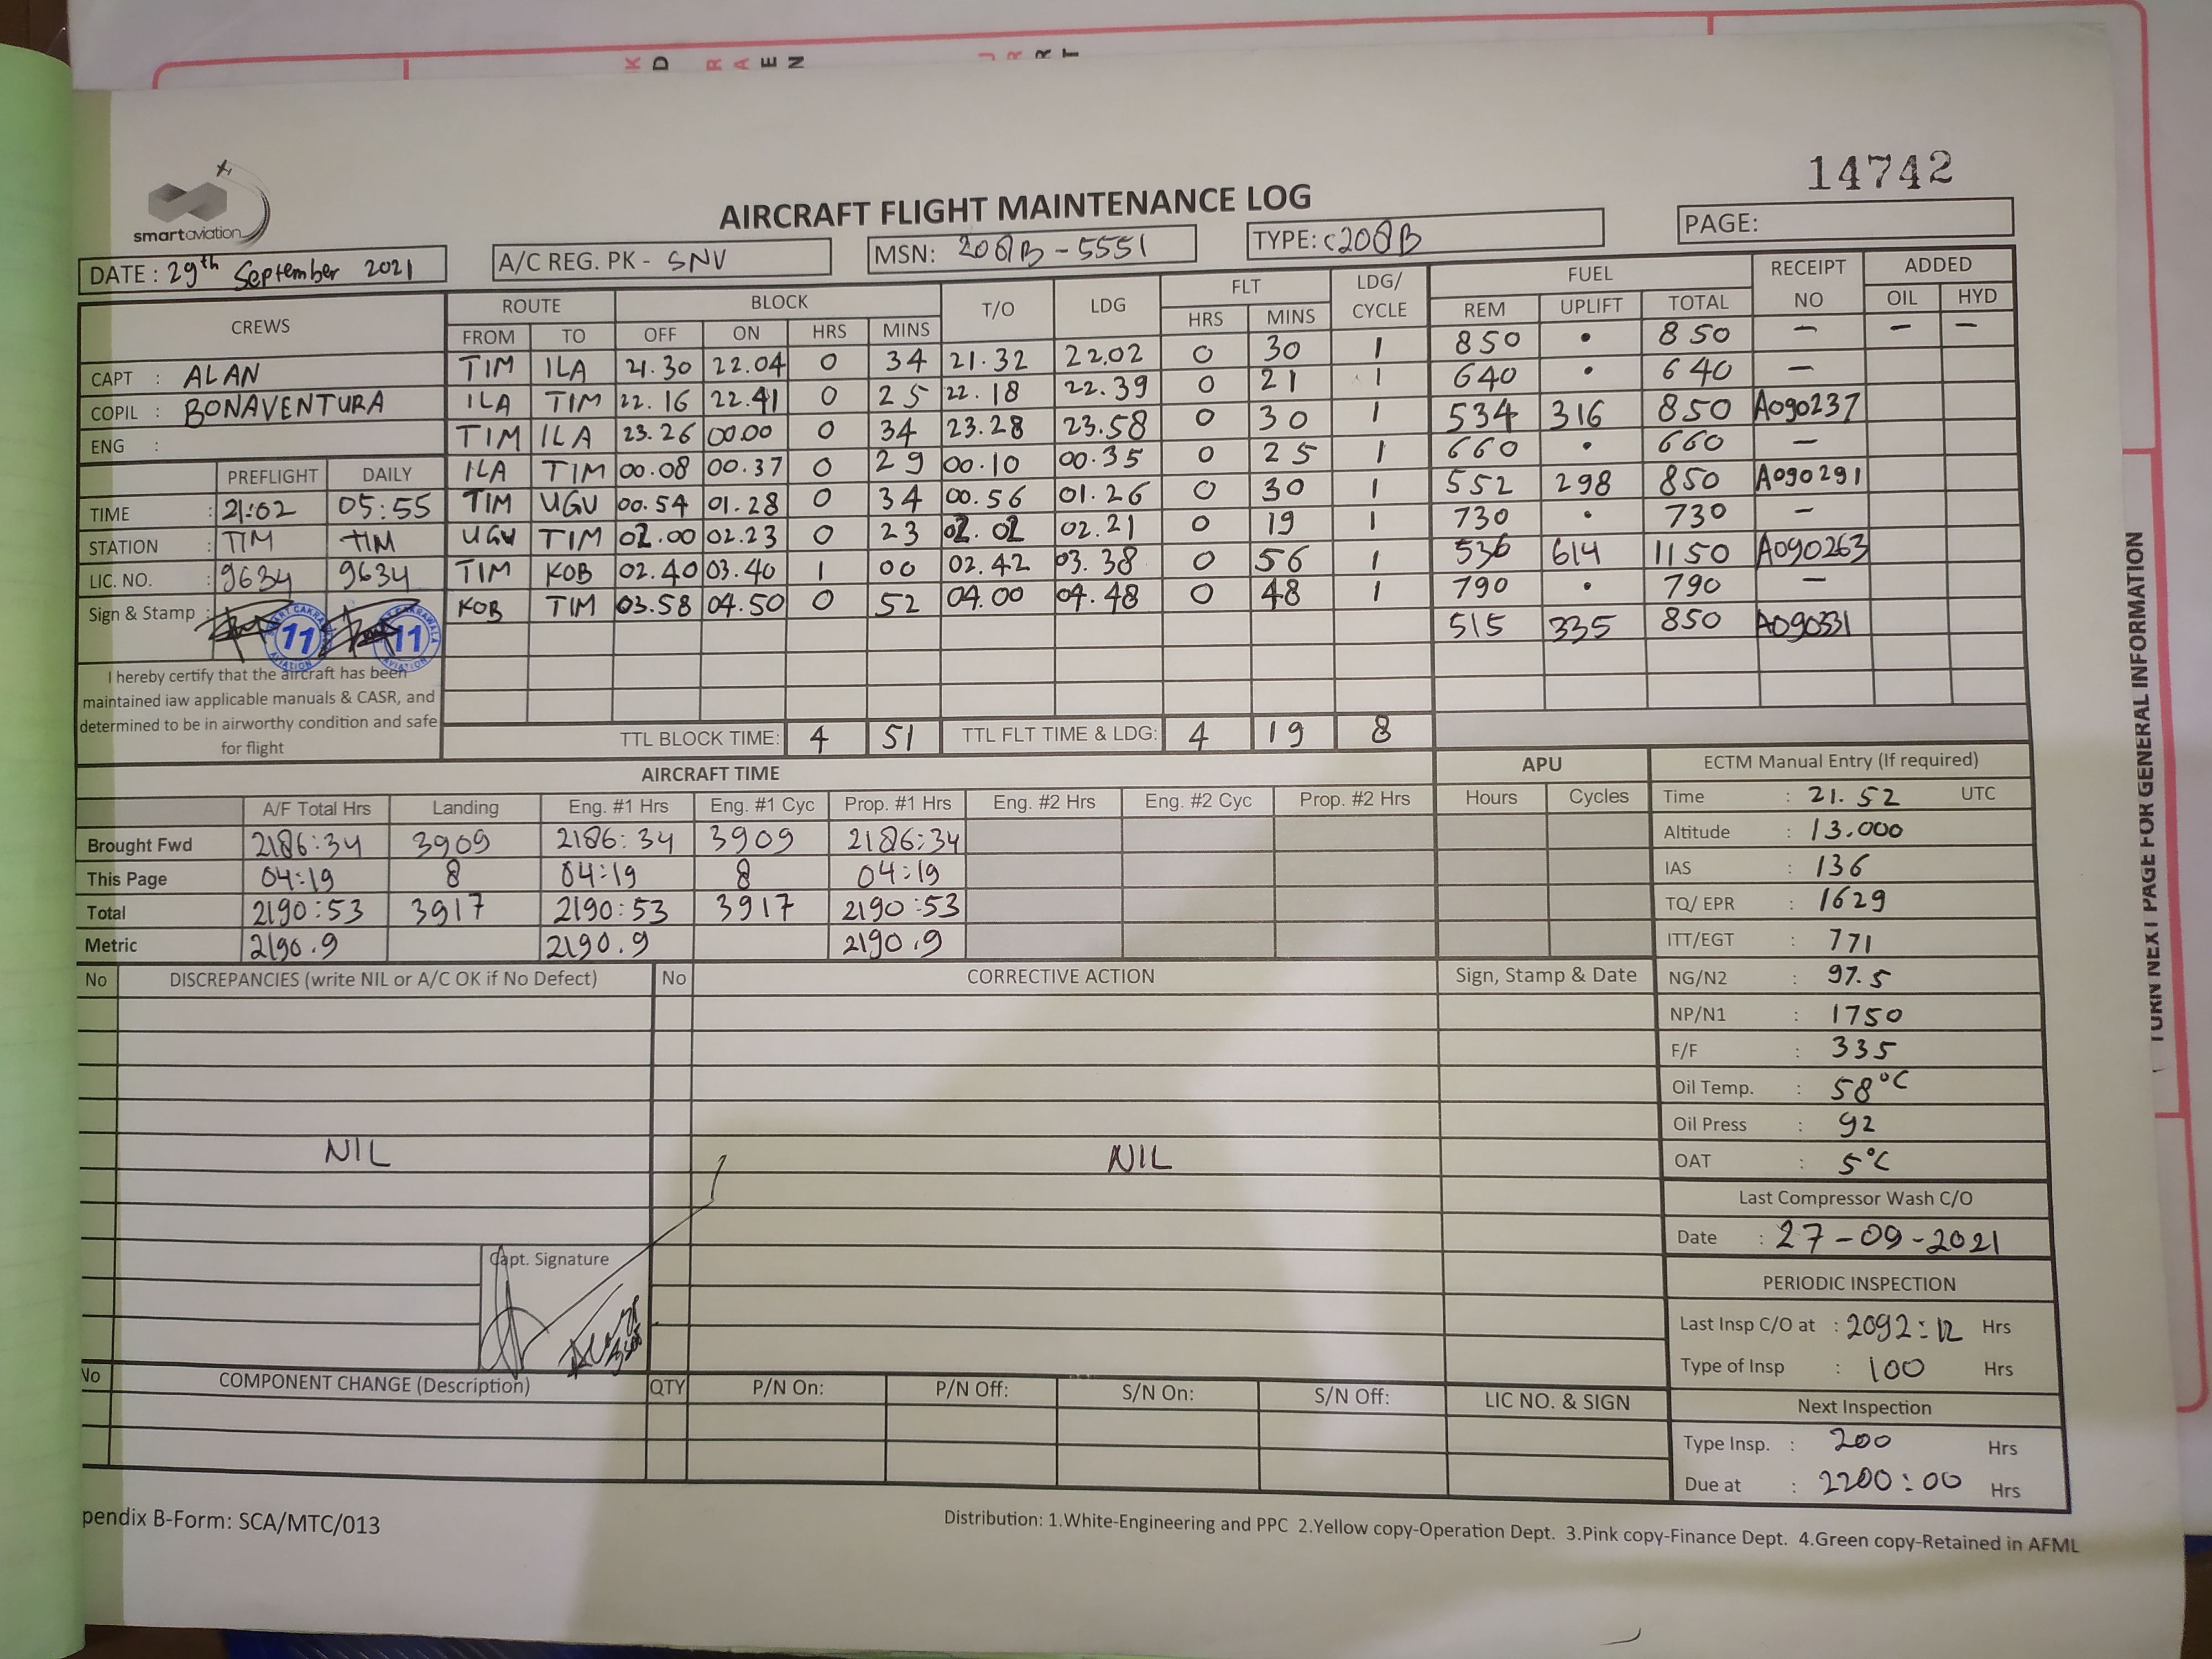 K D R A E N J R R T
14742
smartaviation
AIRCRAFT FLIGHT MAINTENANCE LOG
DATE : 29th September 2021 A/C REG. PK - SNV MSN: 208B-5551 TYPE: C208B PAGE:
CREWS ROUTE BLOCK T/O LDG FLT LDG/ CYCLE FUEL RECEIPT NO ADDED
FROM TO OFF ON HRS MINS HRS MINS REM UPLIFT TOTAL OIL HYD
CAPT : ALAN TIM ILA 21.30 22.04 0 34 21.32 22.02 0 30 1 850 • 850 – – –
COPIL : BONAVENTURA ILA TIM 22.16 22.41 0 25 22.18 22.39 0 21 1 640 • 640 –
ENG : TIM ILA 23.26 00.00 0 34 23.28 23.58 0 30 1 534 316 850 A090237
PREFLIGHT DAILY ILA TIM 00.08 00.37 0 29 00.10 00.35 0 25 1 660 • 660 –
TIME : 21:02 05:55 TIM UGU 00.54 01.28 0 34 00.56 01.26 0 30 1 552 298 850 A090291
STATION : TIM TIM UGU TIM 02.00 02.23 0 23 02.02 02.21 0 19 1 730 • 730 –
LIC. NO. : 9634 9634 TIM KOB 02.40 03.40 1 00 02.42 03.38 0 56 1 536 614 1150 A090263
Sign & Stamp : 11 11 KOB TIM 03.58 04.50 0 52 04.00 04.48 0 48 1 790 • 790 –
515 335 850 A090331
I hereby certify that the aircraft has been
maintained iaw applicable manuals & CASR, and
determined to be in airworthy condition and safe
for flight
TTL BLOCK TIME: 4 51 TTL FLT TIME & LDG: 4 19 8
AIRCRAFT TIME APU ECTM Manual Entry (If required)
A/F Total Hrs Landing Eng. #1 Hrs Eng. #1 Cyc Prop. #1 Hrs Eng. #2 Hrs Eng. #2 Cyc Prop. #2 Hrs Hours Cycles Time : 21.52 UTC
Brought Fwd 2186:34 3909 2186:34 3909 2186:34 Altitude : 13.000
This Page 04:19 8 04:19 8 04:19 IAS : 136
Total 2190:53 3917 2190:53 3917 2190:53 TQ/ EPR : 1629
Metric 2190.9 2190.9 2190.9 ITT/EGT : 771
No DISCREPANCIES (write NIL or A/C OK if No Defect) No CORRECTIVE ACTION Sign, Stamp & Date NG/N2 : 97.5
NP/N1 : 1750
F/F : 335
Oil Temp. : 58°C
Oil Press : 92
NIL NIL OAT : 5°C
Last Compressor Wash C/O
Date : 27-09-2021
Capt. Signature
PERIODIC INSPECTION
Last Insp C/O at : 2092:12 Hrs
Type of Insp : 100 Hrs
No COMPONENT CHANGE (Description) QTY P/N On: P/N Off: S/N On: S/N Off: LIC NO. & SIGN
Next Inspection
Type Insp. : 200 Hrs
Due at : 2200:00 Hrs
pendix B-Form: SCA/MTC/013
Distribution: 1.White-Engineering and PPC 2.Yellow copy-Operation Dept. 3.Pink copy-Finance Dept. 4.Green copy-Retained in AFML
TURN NEXT PAGE FOR GENERAL INFORMATION